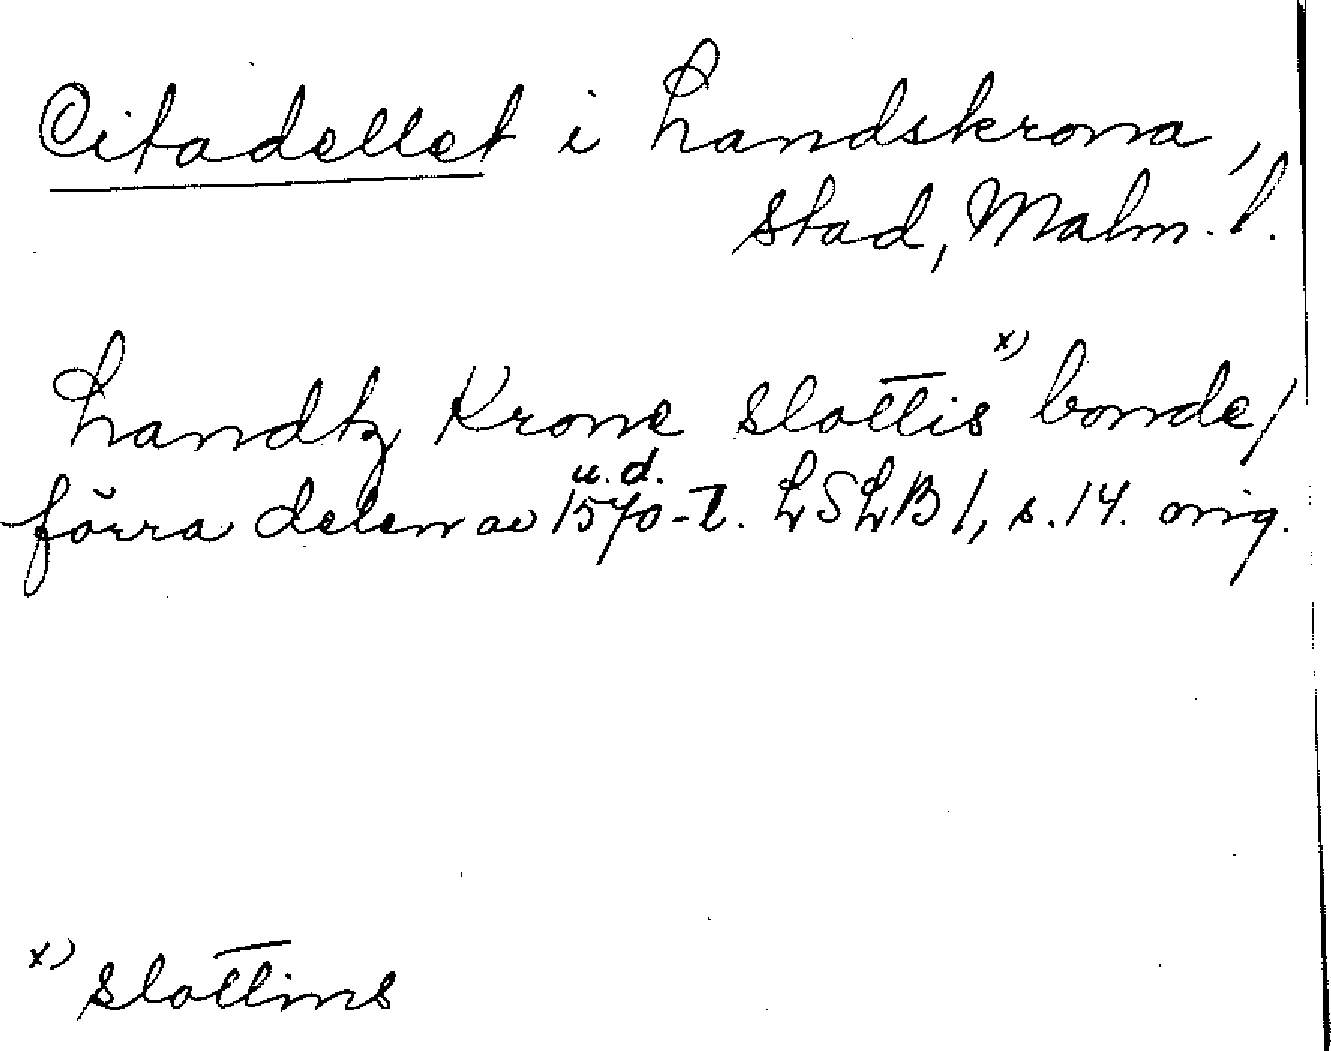 Citadellet i Landskrona,
stad, Malm. l.
Landtz Krone slottis x) bonde/
u. d.
förra delen av 1570-t. LSLB 1, s. 14. orig.
x) slottins